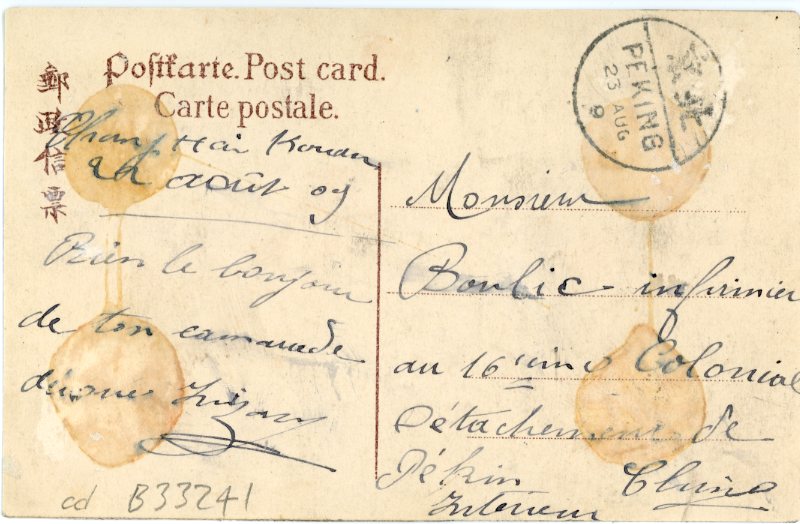 Postkarte. Post card.
Carte postale.
郵政信票
Chang Hai Kouan
22 août 09
Bien le bonjour
de ton camarade
北京
PEKING
23 AUG
9
Monsieur
Boulic infirmier
au 16ieme Colonial
Détachement de
Pékin Chine
Intérieur
cd B33241